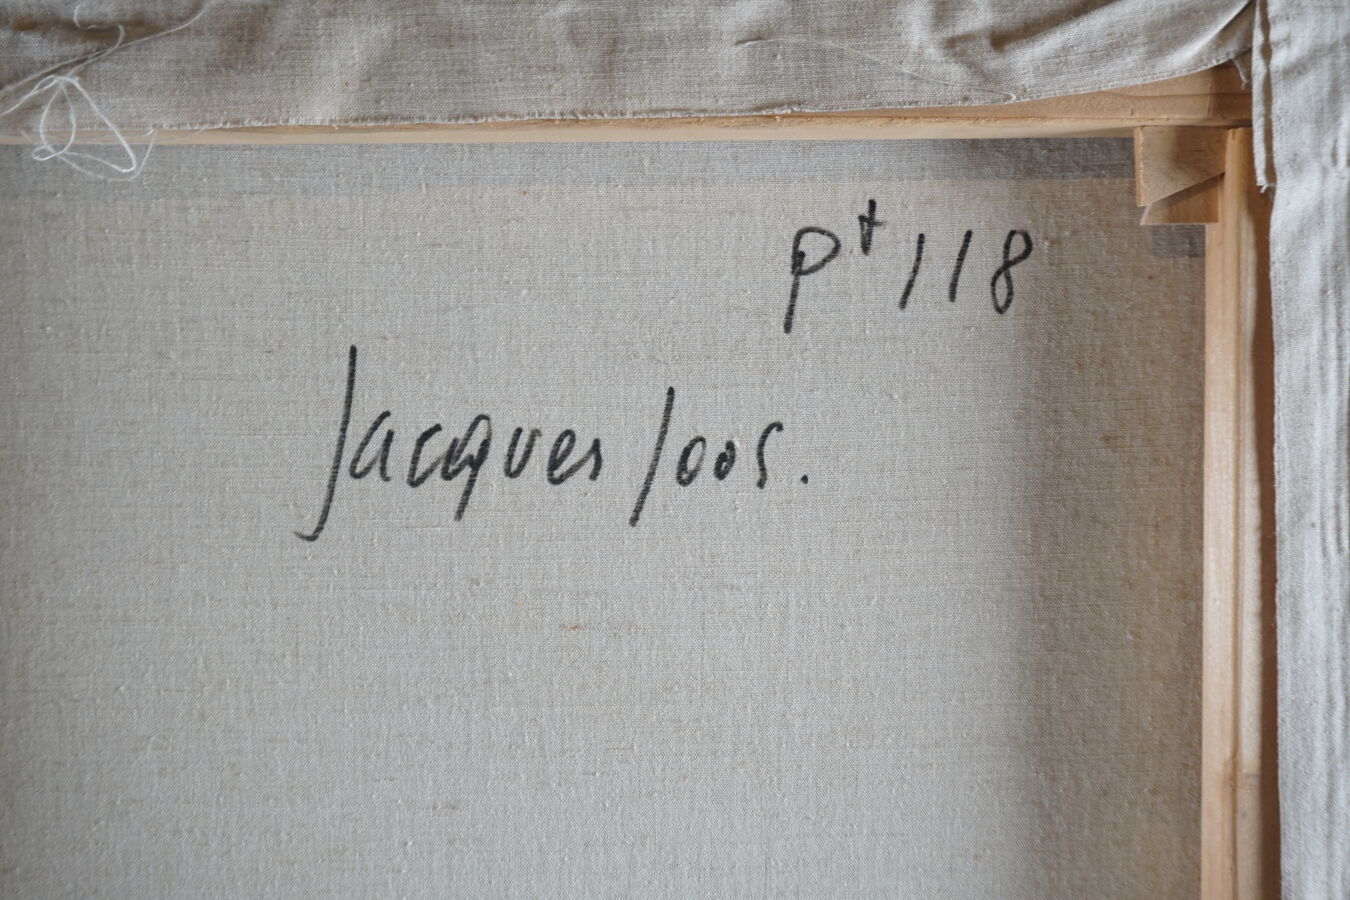 pt 118
Jacques Joos.